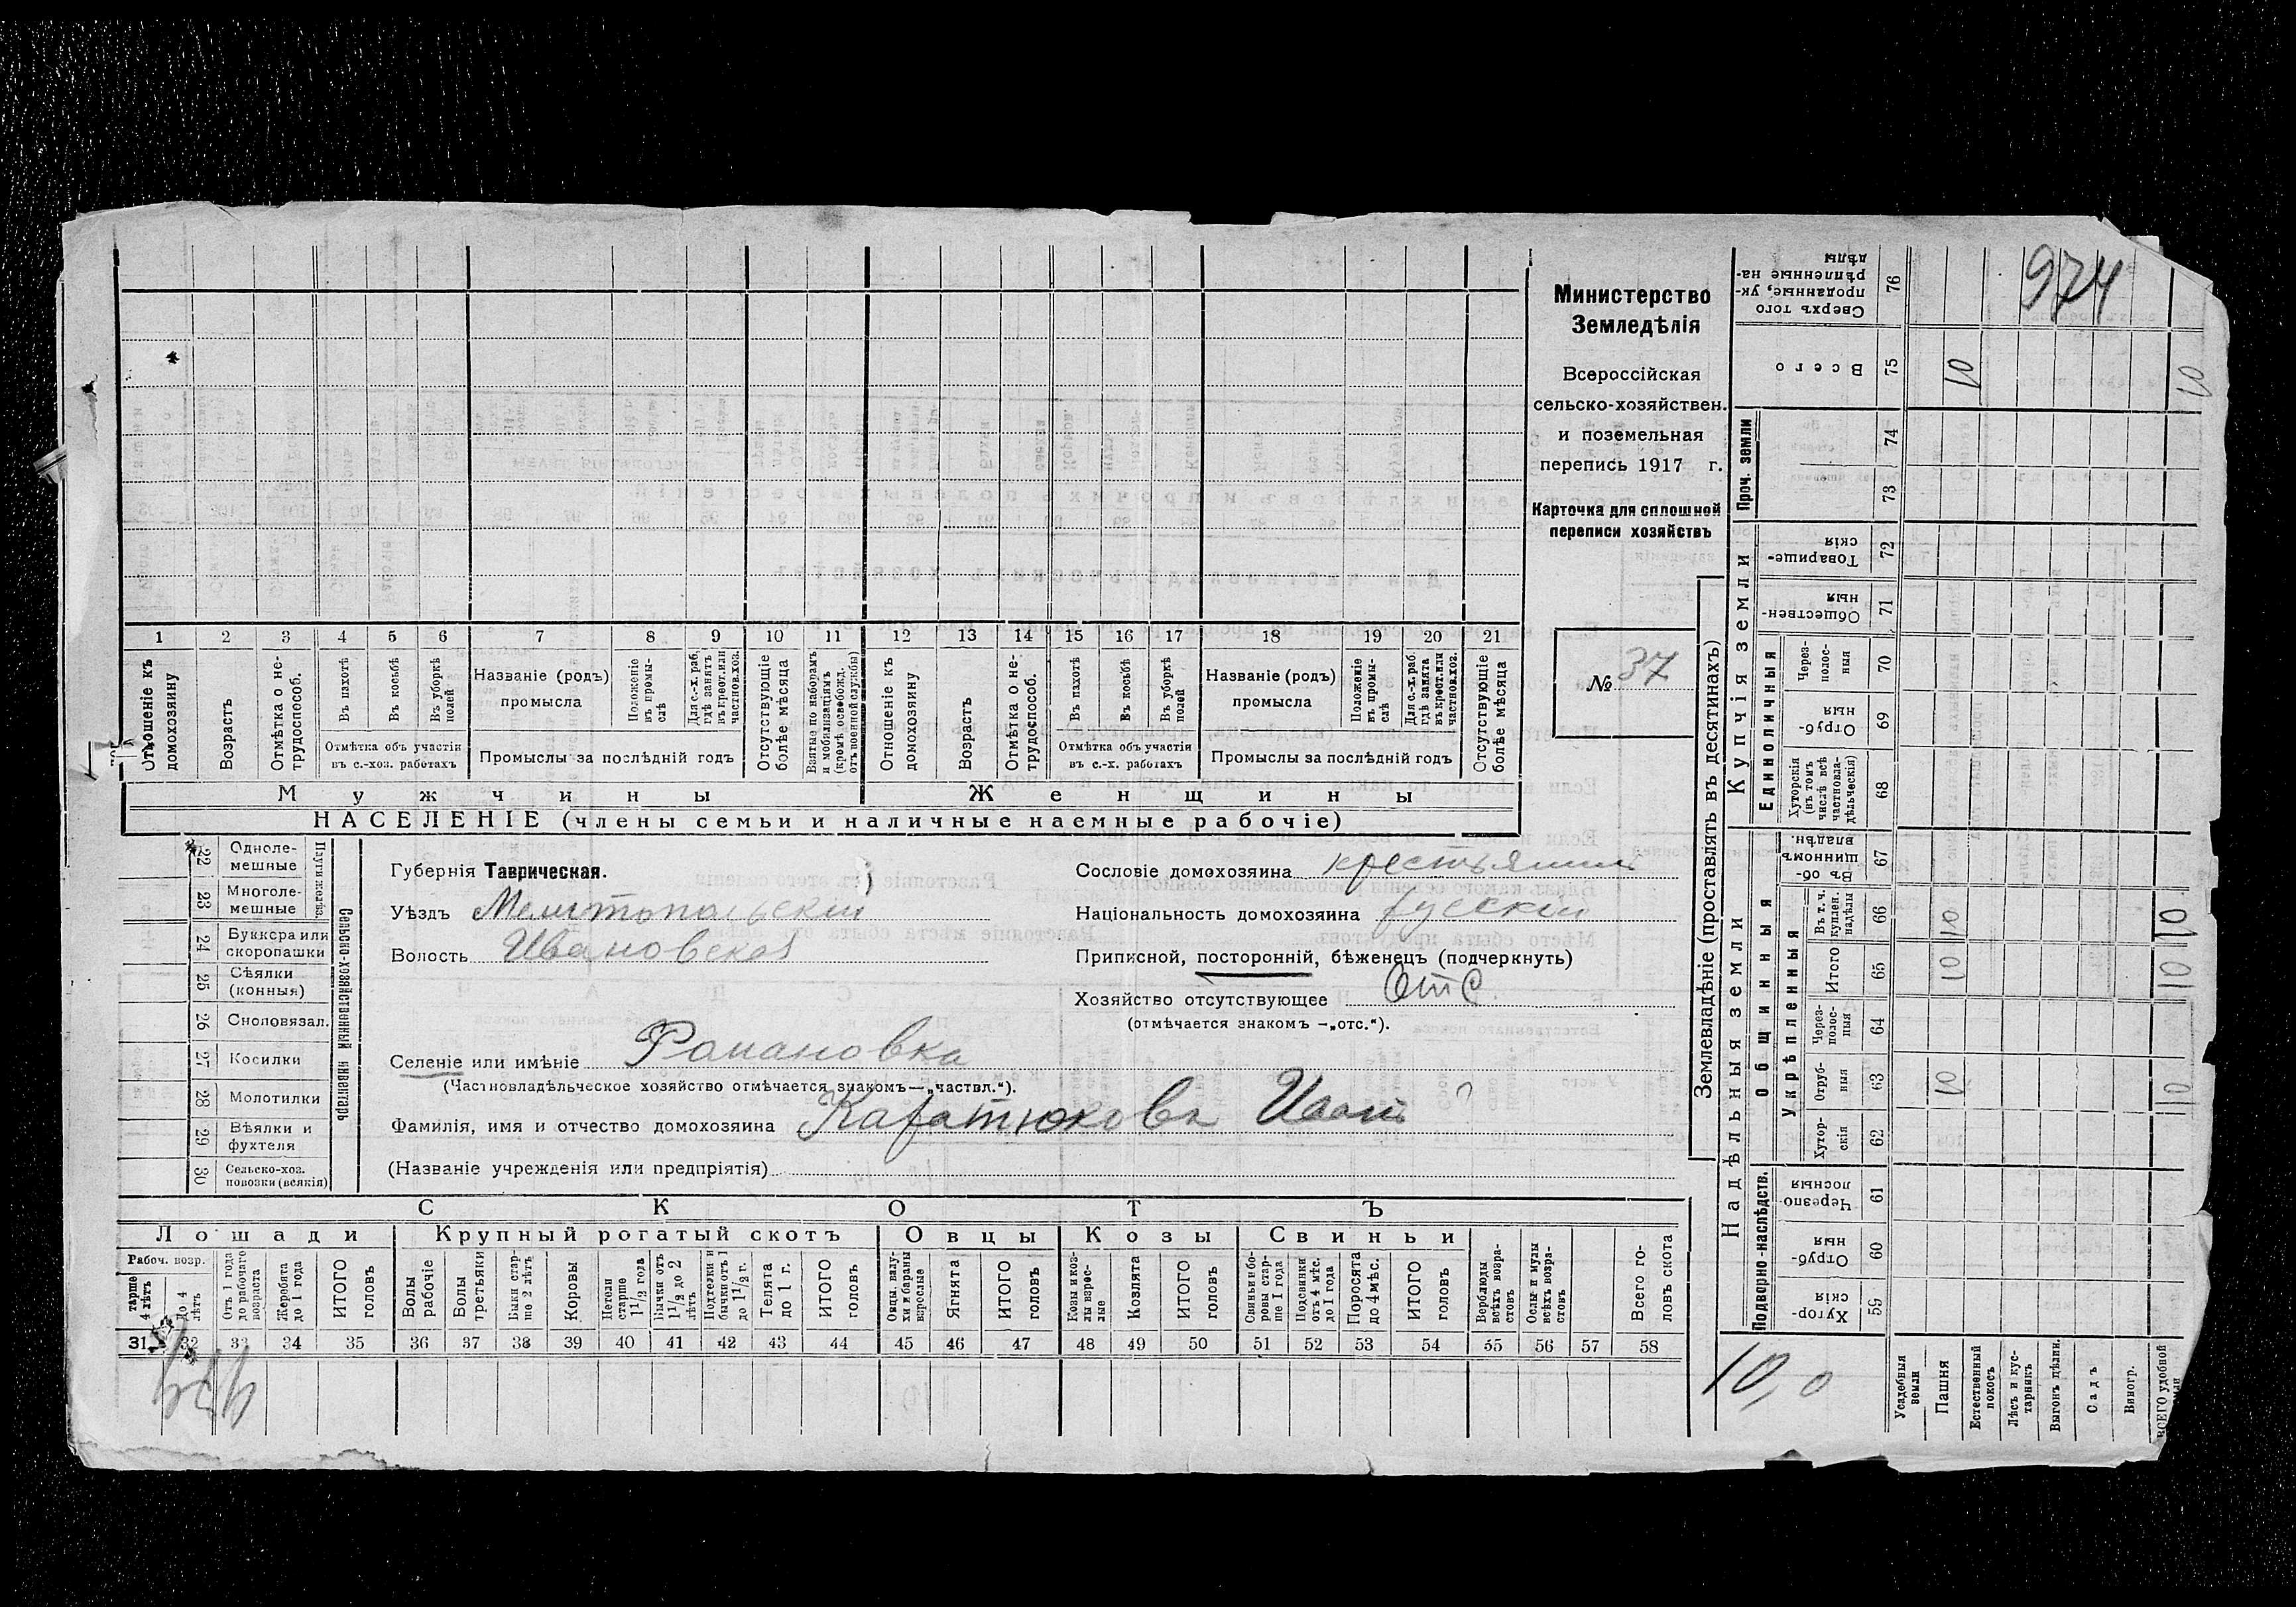 Министерство
Земледѣлія
Всероссійская
сельско-хозяйствен.
и поземельная
перепись 1917 г.
Карточка для сплошной
переписи хозяйствъ
№ 37
974
1 2 3 4 5 6 7 8 9 10 11 12 13 14 15 16 17 18 19 20 21
Отношеніе къ домохозяину
Возрастъ
Отмѣтка о не-трудоспособ.
Въ пахотѣ
Въ косьбѣ
Въ уборкѣ полей
Отмѣтка объ участіи
въ с.-хоз. работахъ
Названіе (родъ)
промысла
Положеніе въ промы-слѣ
Для с.-х. раб. гдѣ занятъ въ крест. или частнов. хоз.
Промыслы за послѣдній годъ
Отсутствующіе болѣе мѣсяца
Взятые по наборамъ и мобилизаціямъ (кромѣ освобожд. отъ военной службы)
Отношеніе къ домохозяину
Возрастъ
Отмѣтка о не-трудоспособ.
Въ пахотѣ
Въ косьбѣ
Въ уборкѣ полей
Отмѣтка объ участіи
въ с.-х. работахъ
Названіе (родъ)
промысла
Положеніе въ промы-слѣ
Для с.-х. раб. гдѣ занята въ крест. или частнов. хоз.
Промыслы за послѣдній годъ
Отсутствующіе болѣе мѣсяца
Мужчины Женщины
НАСЕЛЕНІЕ (члены семьи и наличные наемные рабочіе)
Сельско-хозяйственный инвентарь
22 Одноле-мешные
23 Многоле-мешные
24 Буккера или скоропашки
25 Сѣялки (конныя)
26 Сноповязал.
27 Косилки
28 Молотилки
29 Вѣялки и фухтеля
30 Сельско-хоз. повозки (всякія)
Губернія Таврическая.
Уѣздъ Мелитопольскій
Волость Ивановская
Селеніе или имѣніе Романовка
(Частновладѣльческое хозяйство отмѣчается знакомъ—„частвл.“).
Фамилія, имя и отчество домохозяина Каратюковъ Иванъ ?
(Названіе учрежденія или предпріятія)
Сословіе домохозяина крестьянинъ
Національность домохозяина русскій
Приписной, посторонній, бѣженецъ (подчеркнуть)
Хозяйство отсутствующее Отс
(отмѣчается знакомъ —„отс.“).
СКОТЪ
Лошади Крупный рогатый скотъ Овцы Козы Свиньи
Рабоч. возр.
старше 4 лѣтъ
до 4 лѣтъ
Отъ 1 года до рабочаго возраста
Жеребята до 1 года
ИТОГО головъ
Волы рабочіе
Волы третьяки
Быки стар-ше 2 лѣтъ
Коровы
Нетели старше 1 1/2 года
Бычки отъ 1 1/2 до 2 лѣтъ
Подтелки и бычки отъ 1 до 1 1/2 г.
Телята до 1 г.
ИТОГО головъ
Овцы, валу-хи и бараны взрослые
Ягнята
ИТОГО головъ
Козы и коз-лы взрос-лые
Козлята
ИТОГО головъ
Свиньи и бо-ровы стар-ше 1 года
Подсвинки отъ 4 мѣс. до 1 года
Поросята до 4 мѣс.
ИТОГО головъ
Верблюды всѣхъ возра-стовъ
Ослы и мулы всѣхъ возра-стовъ
Всего го-ловъ скота
31 32 33 34 35 36 37 38 39 40 41 42 43 44 45 46 47 48 49 50 51 52 53 54 55 56 57 58
Землевладѣніе (проставлять въ десятинахъ)
Надѣльныя земли Купчія земли Проч. земли
Подворно-наслѣдств. Общинныя Единоличныя
Укрѣпленныя
59 Хутор-скія
60 Отруб-ныя
61 Черезпо лосныя
62 Хутор-скія
63 Отруб-ныя 10 10
64 Через-полос-ныя
65 Итого 10 10
66 Въ т. ч. куплен. надѣлы 10 10
67 Въ об-щинномъ владѣн.
68 Хуторскія (въ томъ числѣ всѣ частновла-дѣльческія)
69 Отруб-ныя
70 Через-полос-ныя
71 Обществен-ныя
72 Товарище-скія
73
74
75 Всего 10 10
76 Сверхъ того проданные, ук-рѣпленные на-дѣлы
10,0
Усадебныя земли
Пашня
Естественный покосъ
Лѣсъ и кус-тарникъ
Выгонъ цѣлин.
Садъ
Виногр.
ВСЕГО удобной земли